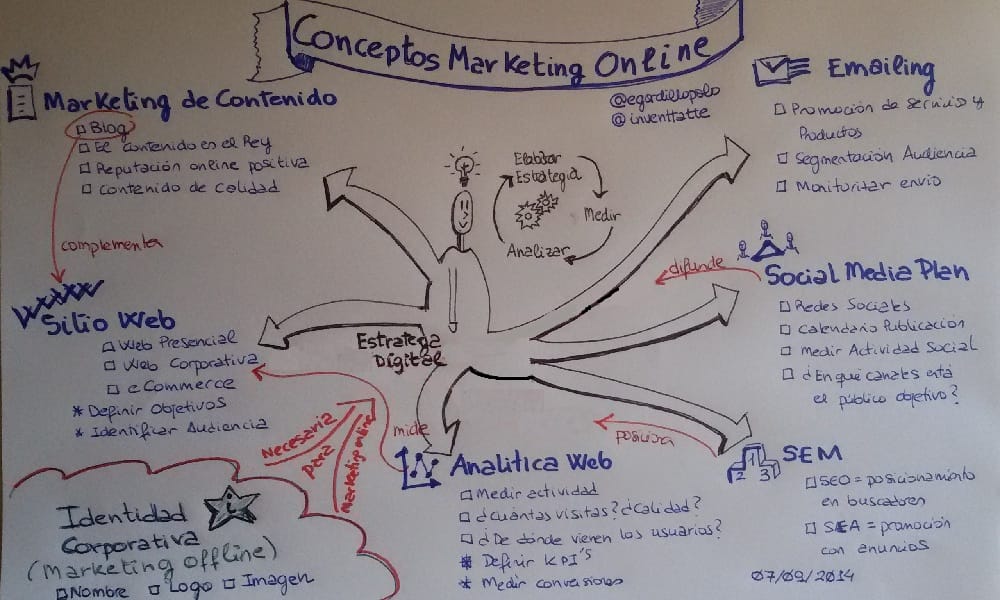 Conceptos Marketing Online
@egordillopolo
@inventtatte
Marketing de Contenido
Blog
El contenido es el Rey
Reputación online positiva
Contenido de calidad
complementa
WWW
Sitio Web
Web Presencial
Web Corporativa
eCommerce
* Definir Objetivos
* Identificar Audiencia
Necesaria
para
Marketing online
Identidad
Corporativa
(Marketing Offline)
Nombre Logo Imagen
Elaborar
Estrategia
Medir
Analizar
Estratega
Digital
mide
Analítica Web
Medir actividad
¿Cuántas visitas? ¿Calidad?
¿De dónde vienen los usuarios?
* Definir KPI'S
* Medir conversiones
Emailing
Promoción de servicio y
Productos
Segmentación Audiencia
Monitorizar envío
difunde
Social Media Plan
Redes Sociales
Calendario Publicación
Medir Actividad Social
¿En qué canales está
el público objetivo?
posiciona
1
2 3
SEM
SEO = posicionamiento
en buscadores
SEA = promoción
con anuncios
07/09/2014